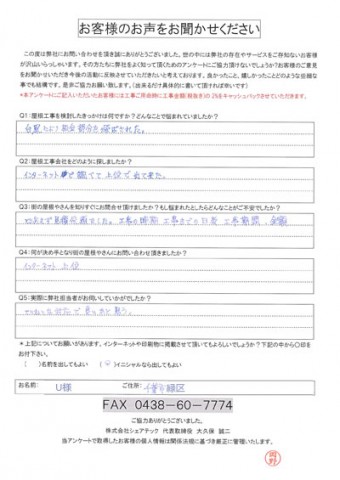 お客様のお声をお聞かせください
この度は弊社にお問い合わせを頂き誠にありがとうございました。世の中には弊社の存在やサービスをご存知ないお客様
が沢山いらっしゃいます。その方たちに弊社をよく知って頂くためのアンケートにご協力頂けないでしょうか?お客様のご意見
をお聞かせいただき今後の活動に反映させていただきたいと考えております。良かったこと、嬉しかったことどのような些細な
事でも結構です。是非ご協力お願い致します。(出来るだけ具体的に書いて頂ければ幸いです)
*本アンケートにご記入いただいたお客様には工事ご用命時に工事金額(税抜き)の2%をキャッシュバックさせていただきます。
Q1:屋根工事を検討したきっかけは何ですか?どんなことで悩まれていましたか?
Q2:屋根工事会社をどのように探しましたか?
インターネット で 上位で
Q3:街の屋根やさんを知りすぐにお問合せ頂けましたか?もし悩まれたとしたらどんなことがご不安でしたか?
工事の時期 工事 工事期間、金額
Q4:何が決め手となり街の屋根やさんにお問い合わせ頂きましたか?
インターネット上位
Q5:実際に弊社担当者がお伺いしていかがでしたか?
*上記についてお願いがあります。インターネットや印刷物に掲載させて頂いてもよろしいでしょうか?下記の中から〇印を
お付下さい。
( )名前を出してもよい (○)イニシャルなら出してもよい
お名前: U様 ご住所: 千葉市緑区
FAX 0438-60-7774
ご協力ありがとうございました。
株式会社シェアテック 代表取締役 大久保 誠二
当アンケートで取得したお客様の個人情報は関係法規に基づき厳正に管理いたします。